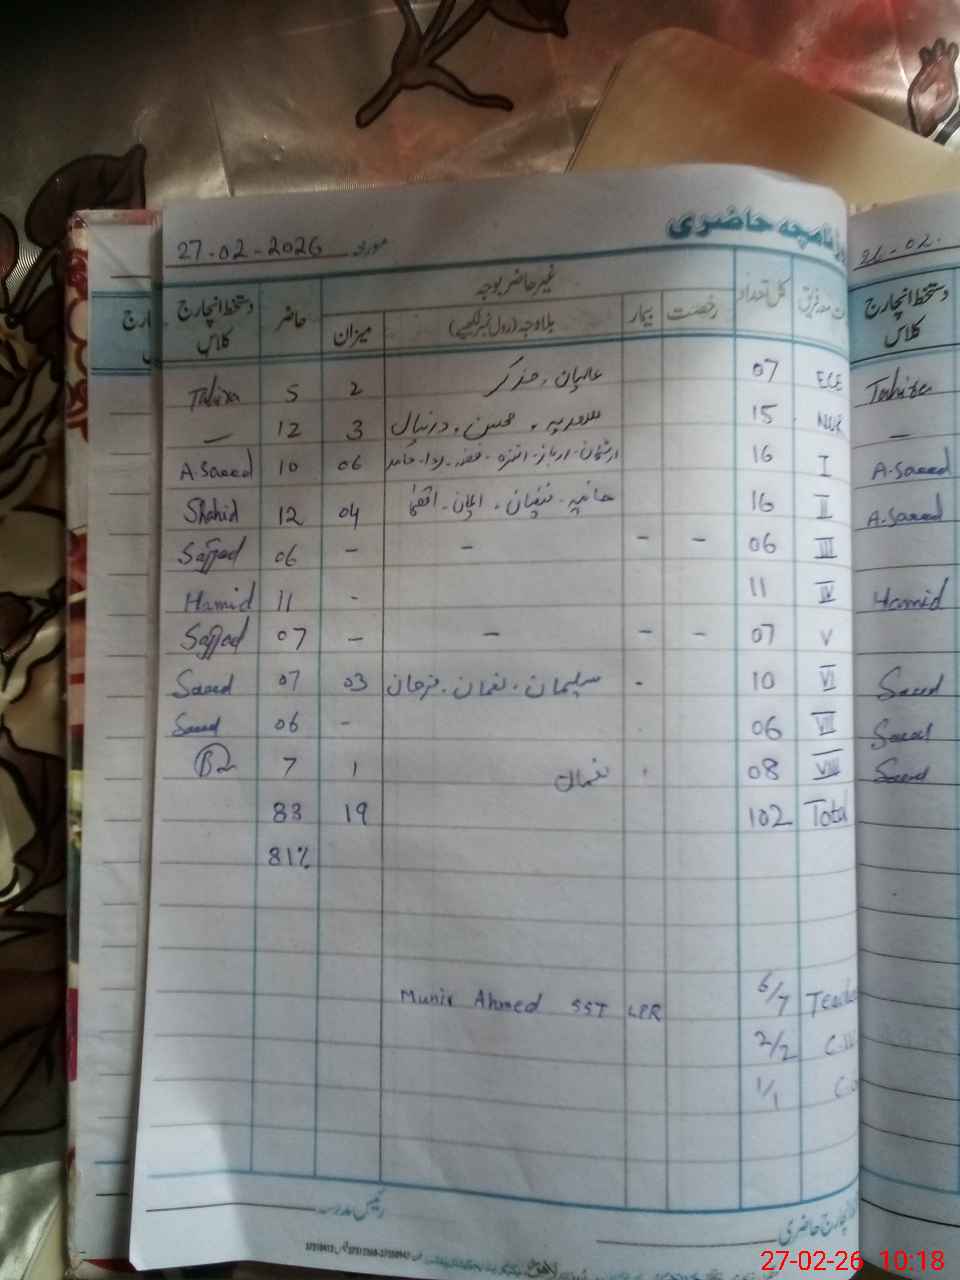 روزنامچہ حاضری
مورخہ 27-02-2026
کل تعداد
غیر حاضر بوجہ
رخصت بیمار بلاوجہ (رول نمبر لکھیے) میزان
حاضر
دستخط انچارج کلاس
ECE 07 2 5 Tahira
NUR 15 3 12 –
I 16 06 10 A.Saeed
II 16 04 12 Shahid
III 06 - - - - 06 Sajjad
IV 11 - 11 Hamid
V 07 - - - - 07 Sajjad
VI 10 - سلیمان، نعمان، فرحان 03 07 Saeed
VII 06 - 06 Saeed
VIII 08 نعمان 1 7
Total 102 19 83
81%
6/7 LPR SST Munir Ahmed
2/2
1/1
انچارج حاضری
رئیس مدرسہ
دستخط انچارج
کلاس
Tahira
–
A.Saeed
A.Saeed
Hamid
Saeed
Saeed
Saeed
27-02-26 10:18